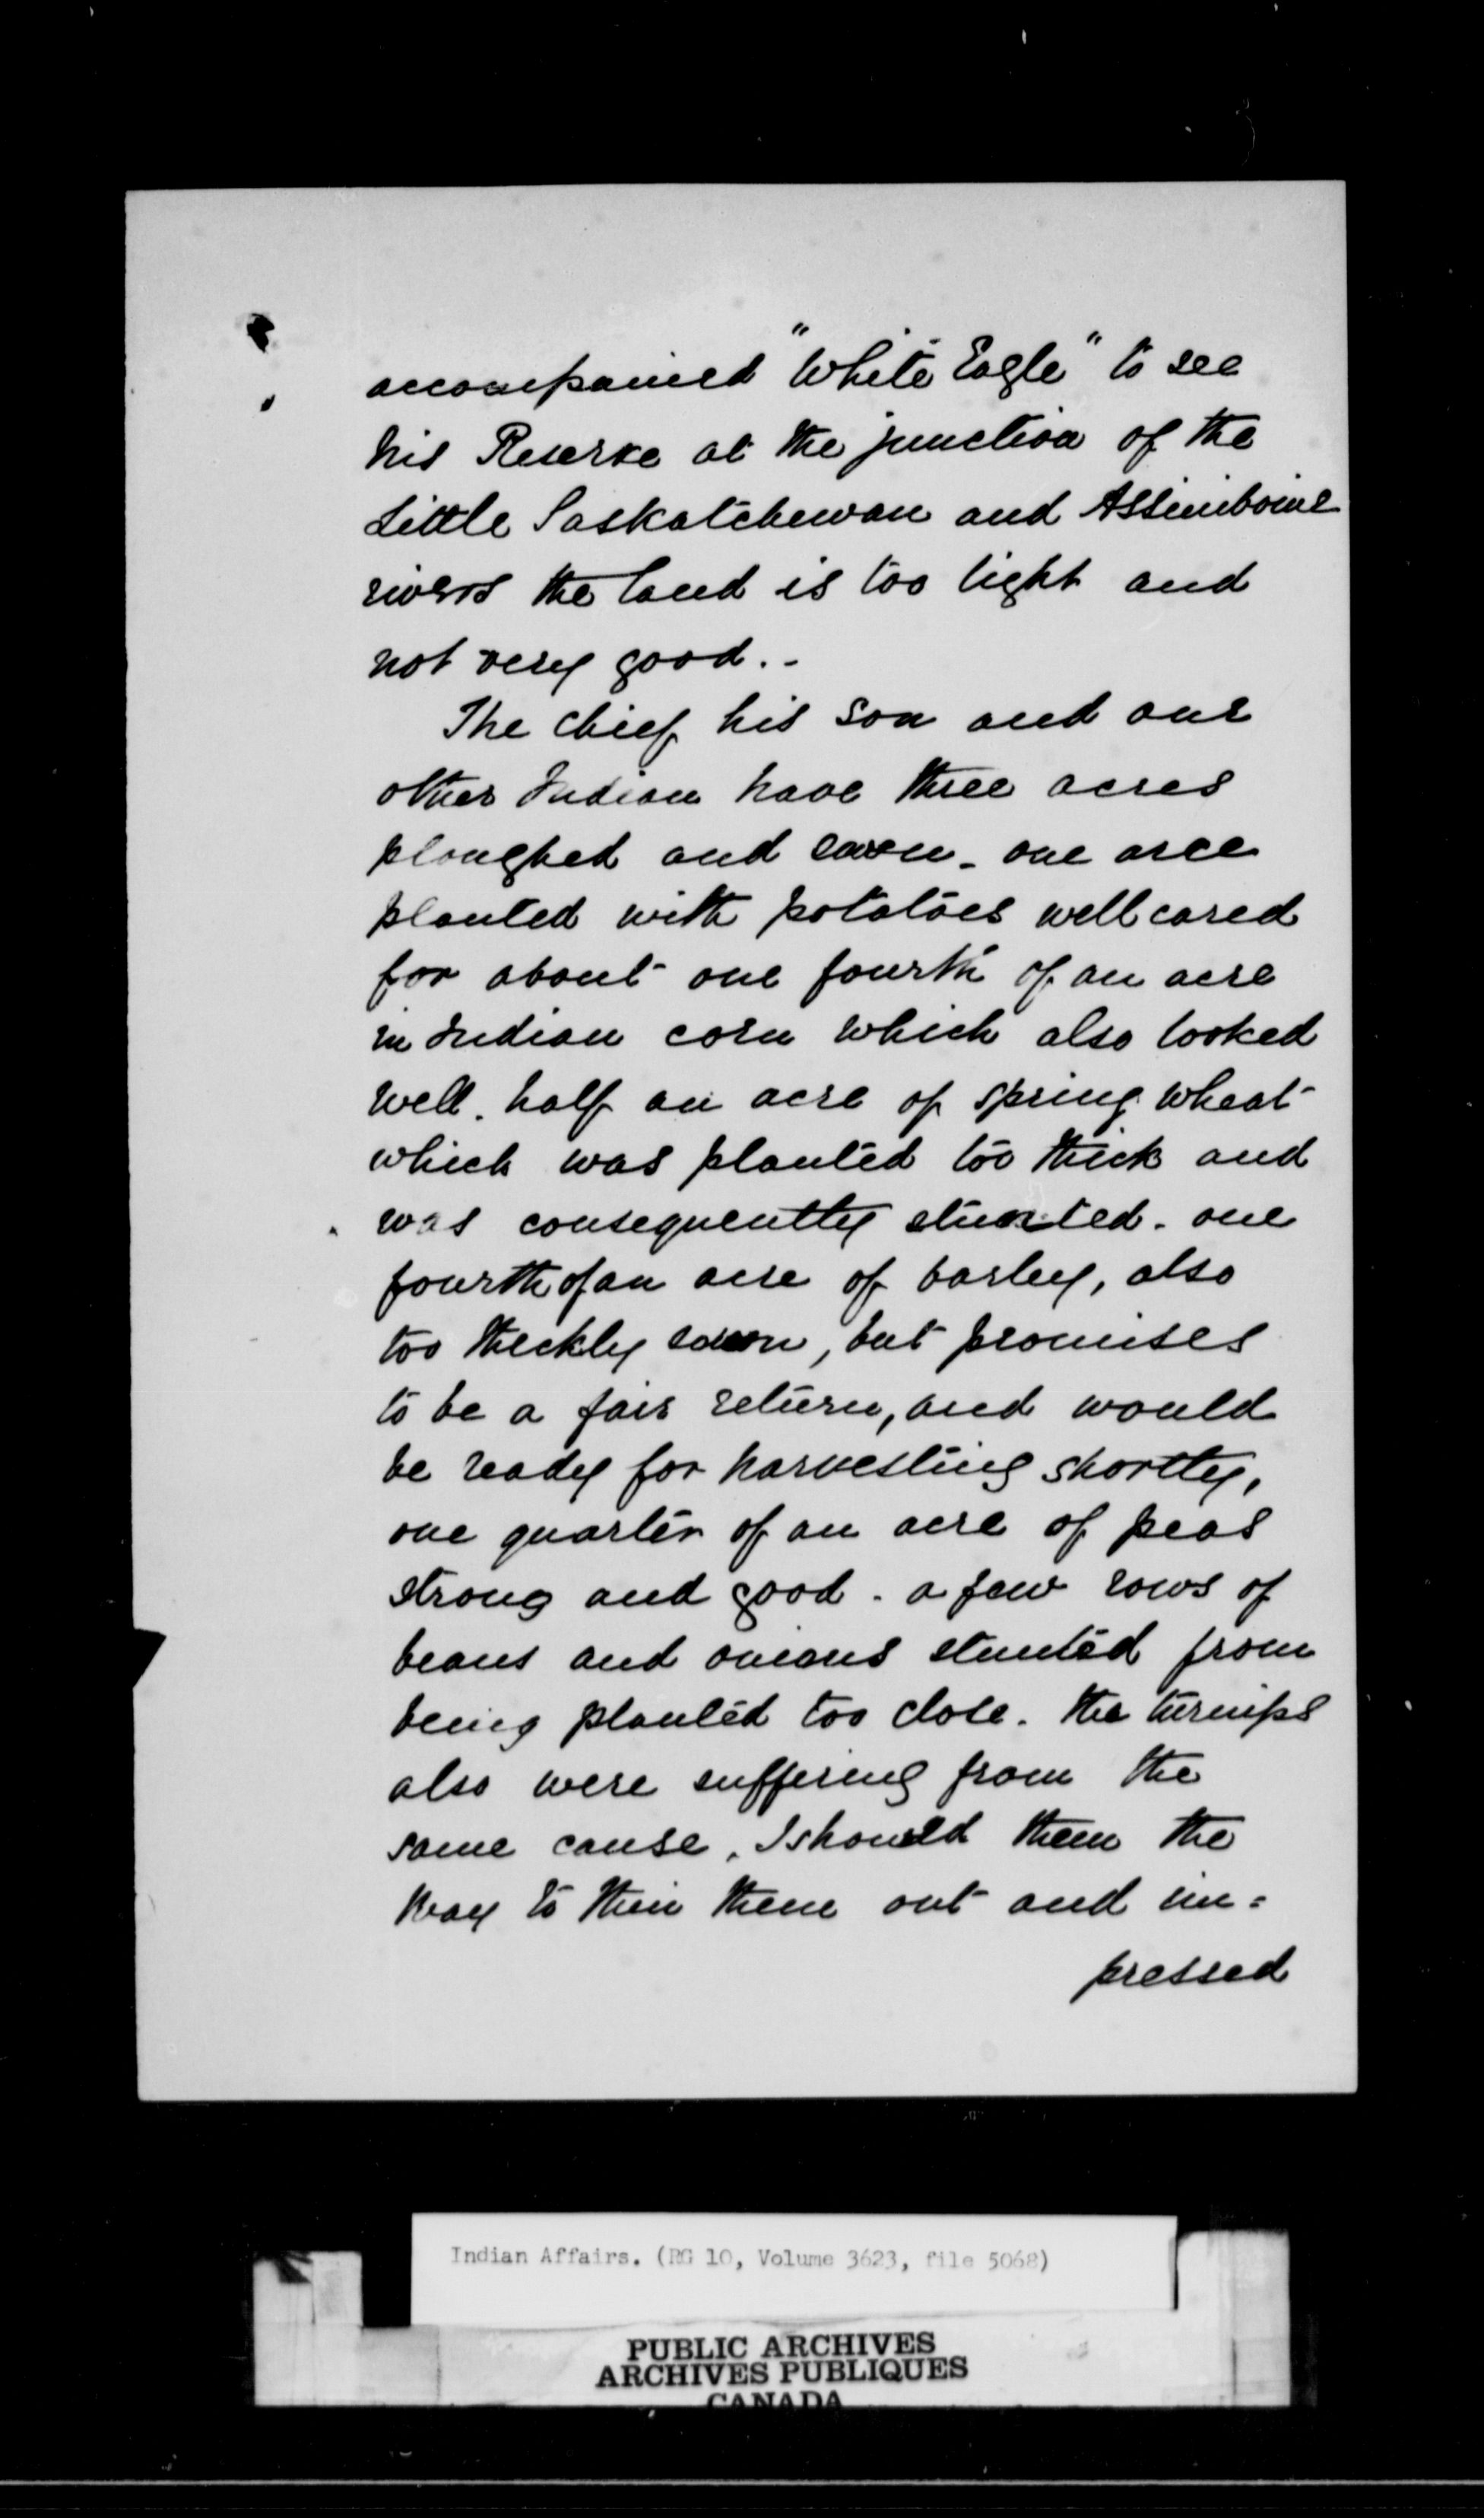 accompanied "White Eagle" to see
his Reserve at the junction of the
Little Saskatchewan and Assiniboine
rivers the land is too light and
not very good. -
The chief his son and one
other Indian have three acres
ploughed and sown - one acre
planted with potatoes well cared
for about one fourth of an acre
in Indian corn which also looked
well. half an acre of spring wheat
which was planted too thick and
was consequently stunted. one
fourth of an acre of barley, also
too thickly sown, but promises
to be a fair return, and would
be ready for harvesting shortly,
one quarter of an acre of peas
strong and good. a few rows of
beans and onions stunted from
being planted too close. the turnips
also were suffering from the
same cause. I should them the
way to thin them out and im=
pressed
Indian Affairs. (RG 10, Volume 3623, file 5068)
PUBLIC ARCHIVES
ARCHIVES PUBLIQUES
CANADA